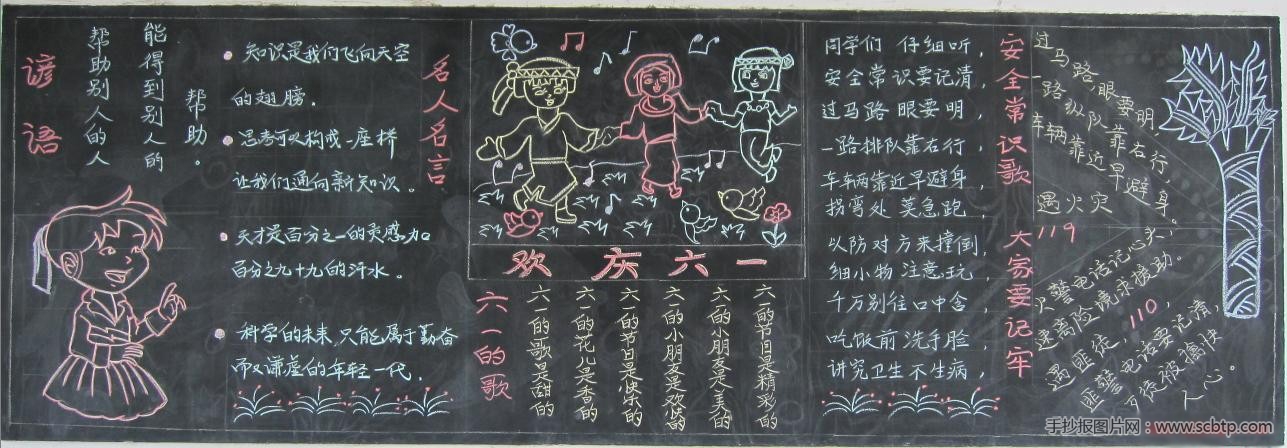 谚语
帮助别人的人
能得到别人的
帮助。
名人名言
知识是我们飞向天空
的翅膀.
思考可以构成一座桥
让我们通向新知识.
天才是百分之一的灵感加
百分之九十九的汗水。
科学的未来,只能属于勤奋
而又谦虚的年轻一代.
欢庆六一
六一的歌
六一的歌是甜的
六一的花儿是香的
六一的节日是快乐的
六一的小朋友是欢快的
六一的小朋友是美的
六一的节目是精彩的
同学们 仔细听,
安全常识要记清,
过马路 眼要明,
一路排队靠右行,
车辆靠近早避身,
拐弯处 莫急跑,
以防对方来撞倒,
细小物 注意玩,
千万别往口中含,
吃饭前 洗手脸,
讲究卫生不生病,
安全常识歌 大家要记牢
过马路眼要明
一路纵队靠右行,
车辆靠近早避身。
遇火灾
119
火警电话记心头,
速离险境求援助.
遇匪徒,110,
匪警电话要记清,
歹徒被擒快
人心。
手抄报图片网:www.scbtp.com